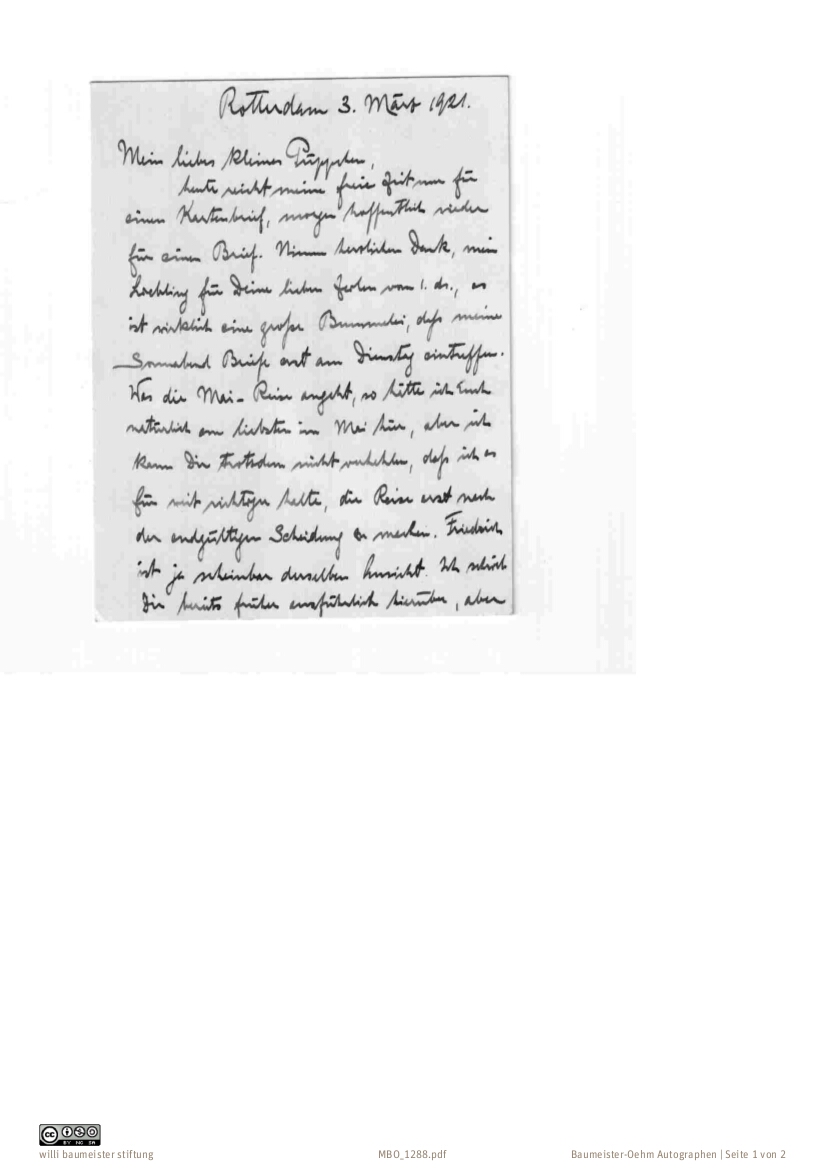 Rotterdam 3. März 1921.
Mein liebes kleines Püppchen,
heute reicht meine freie Zeit nur für
einen Kartenbrief, morgen hoffentlich wieder
für einen Brief. Nimm herzlichen Dank, mein
Liebling für Deine lieben Zeilen vom 1. ds., es
ist wirklich eine große Bummelei, daß meine
Sonnabend Briefe erst am Dienstag eintreffen.
Was die Mai-Reise angeht, so hätte ich Euch
natürlich am liebsten im Mai hier, aber ich
kann Dir trotzdem nicht verhehlen, daß ich es
für richtiger halte, die Reise erst nach
der endgültigen Scheidung zu machen. Friedrich
ist ja scheinbar derselben Ansicht. Ich schrieb
Dir bereits früher ausführlich hierüber, aber
CC BY NC SA
willi baumeister stiftung
MBO_1288.pdf
Baumeister-Oehm Autographen | Seite 1 von 2